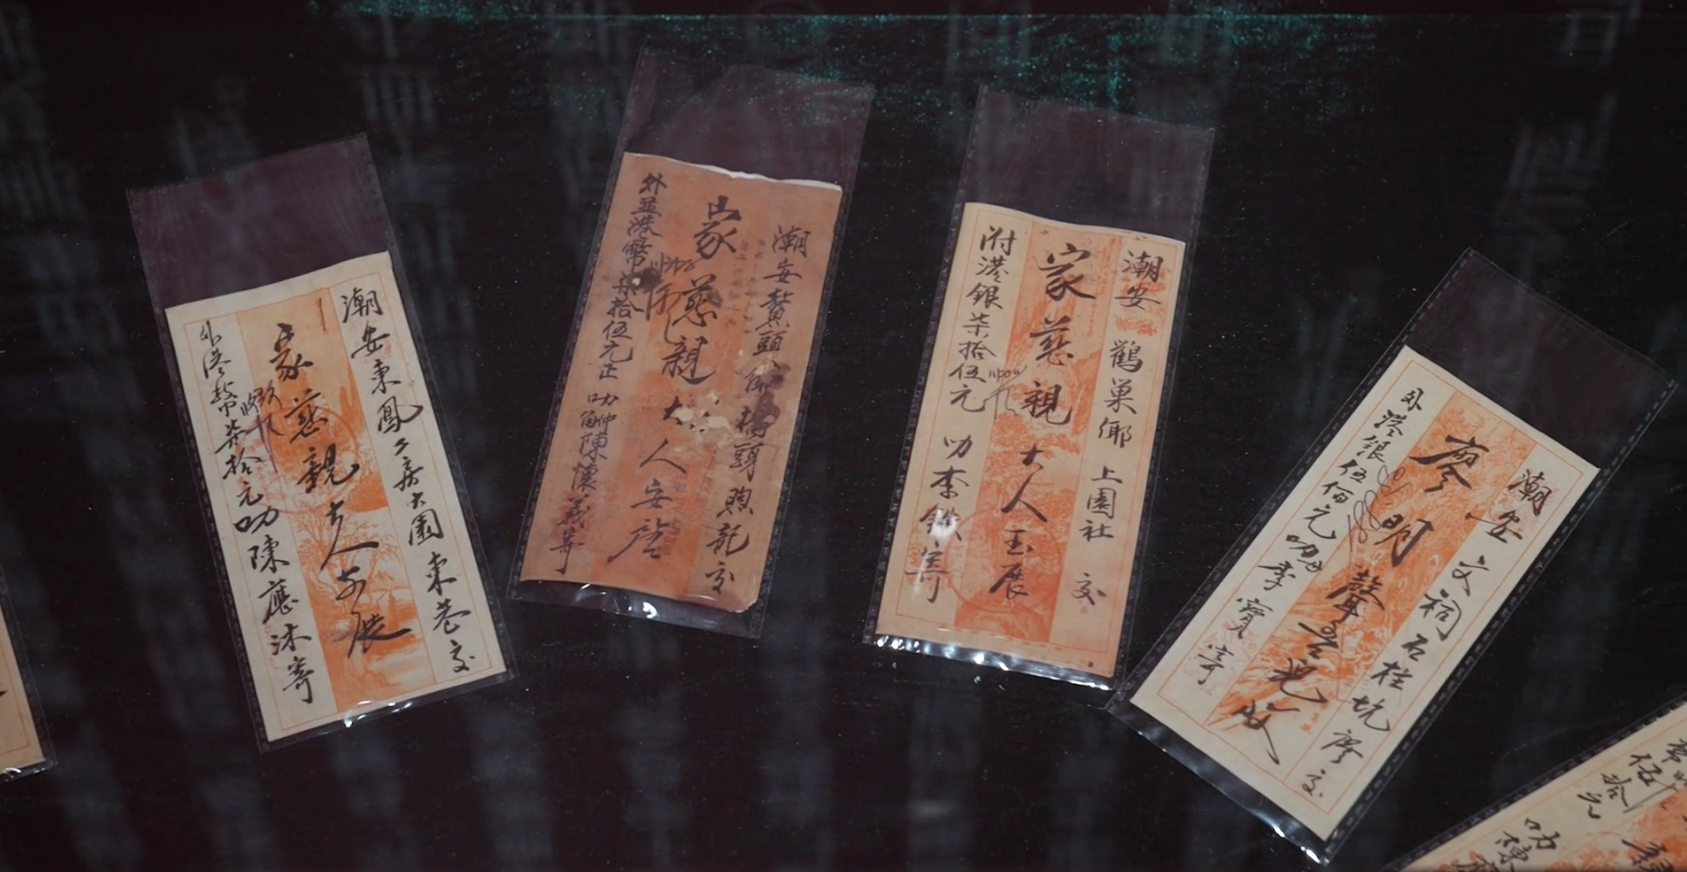 潮安東鳳
大園東巷交
家慈親大人安啟
外港幣柒拾元叻陳應沐寄
潮安
橋頭
交
家慈親大人安啓
外並港幣柒拾伍元正
叻
陳懷義寄
潮安鸛巢鄉上園社
交
家慈親大人玉展
附港銀柒拾伍元
叻李
寄
潮安文祠石柱坑廖交
廖明聲
外港銀伍佰元叻
李寶寄
伍拾元
叻